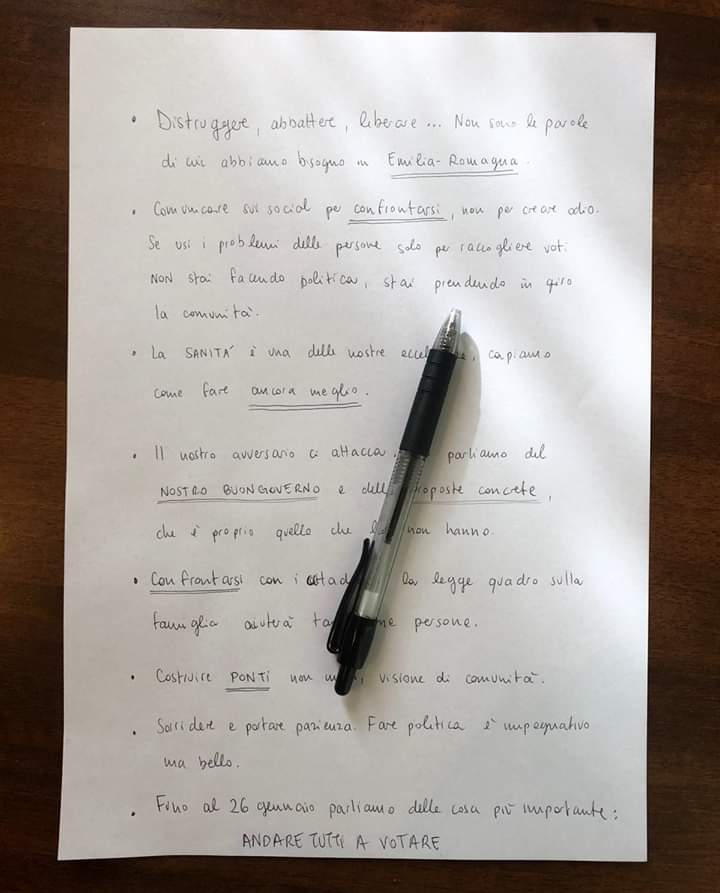 • Distruggere, abbattere, liberare ... Non sono le parole
di cui abbiamo bisogno in Emilia-Romagna.
• Comunicare sui social per confrontarsi, non per creare odio.
Se usi i problemi delle persone solo per raccogliere voti
NON stai facendo politica, stai prendendo in giro
la comunità.
• La SANITÀ è una delle nostre, capiamo
come fare ancora meglio.
• Il nostro avversario ci attacca. parliamo del
NOSTRO BUONGOVERNO e concrete,
che è proprio quello che non hanno.
• Confrontarsi con i la legge quadro sulla
famiglia aiuterà persone.
• Costruire PONTI non, visione di comunità.
• Sorridere e portare pazienza. Fare politica è impegnativo
ma bello.
• Fino al 26 gennaio parliamo delle cosa più importante:
ANDARE TUTTI A VOTARE